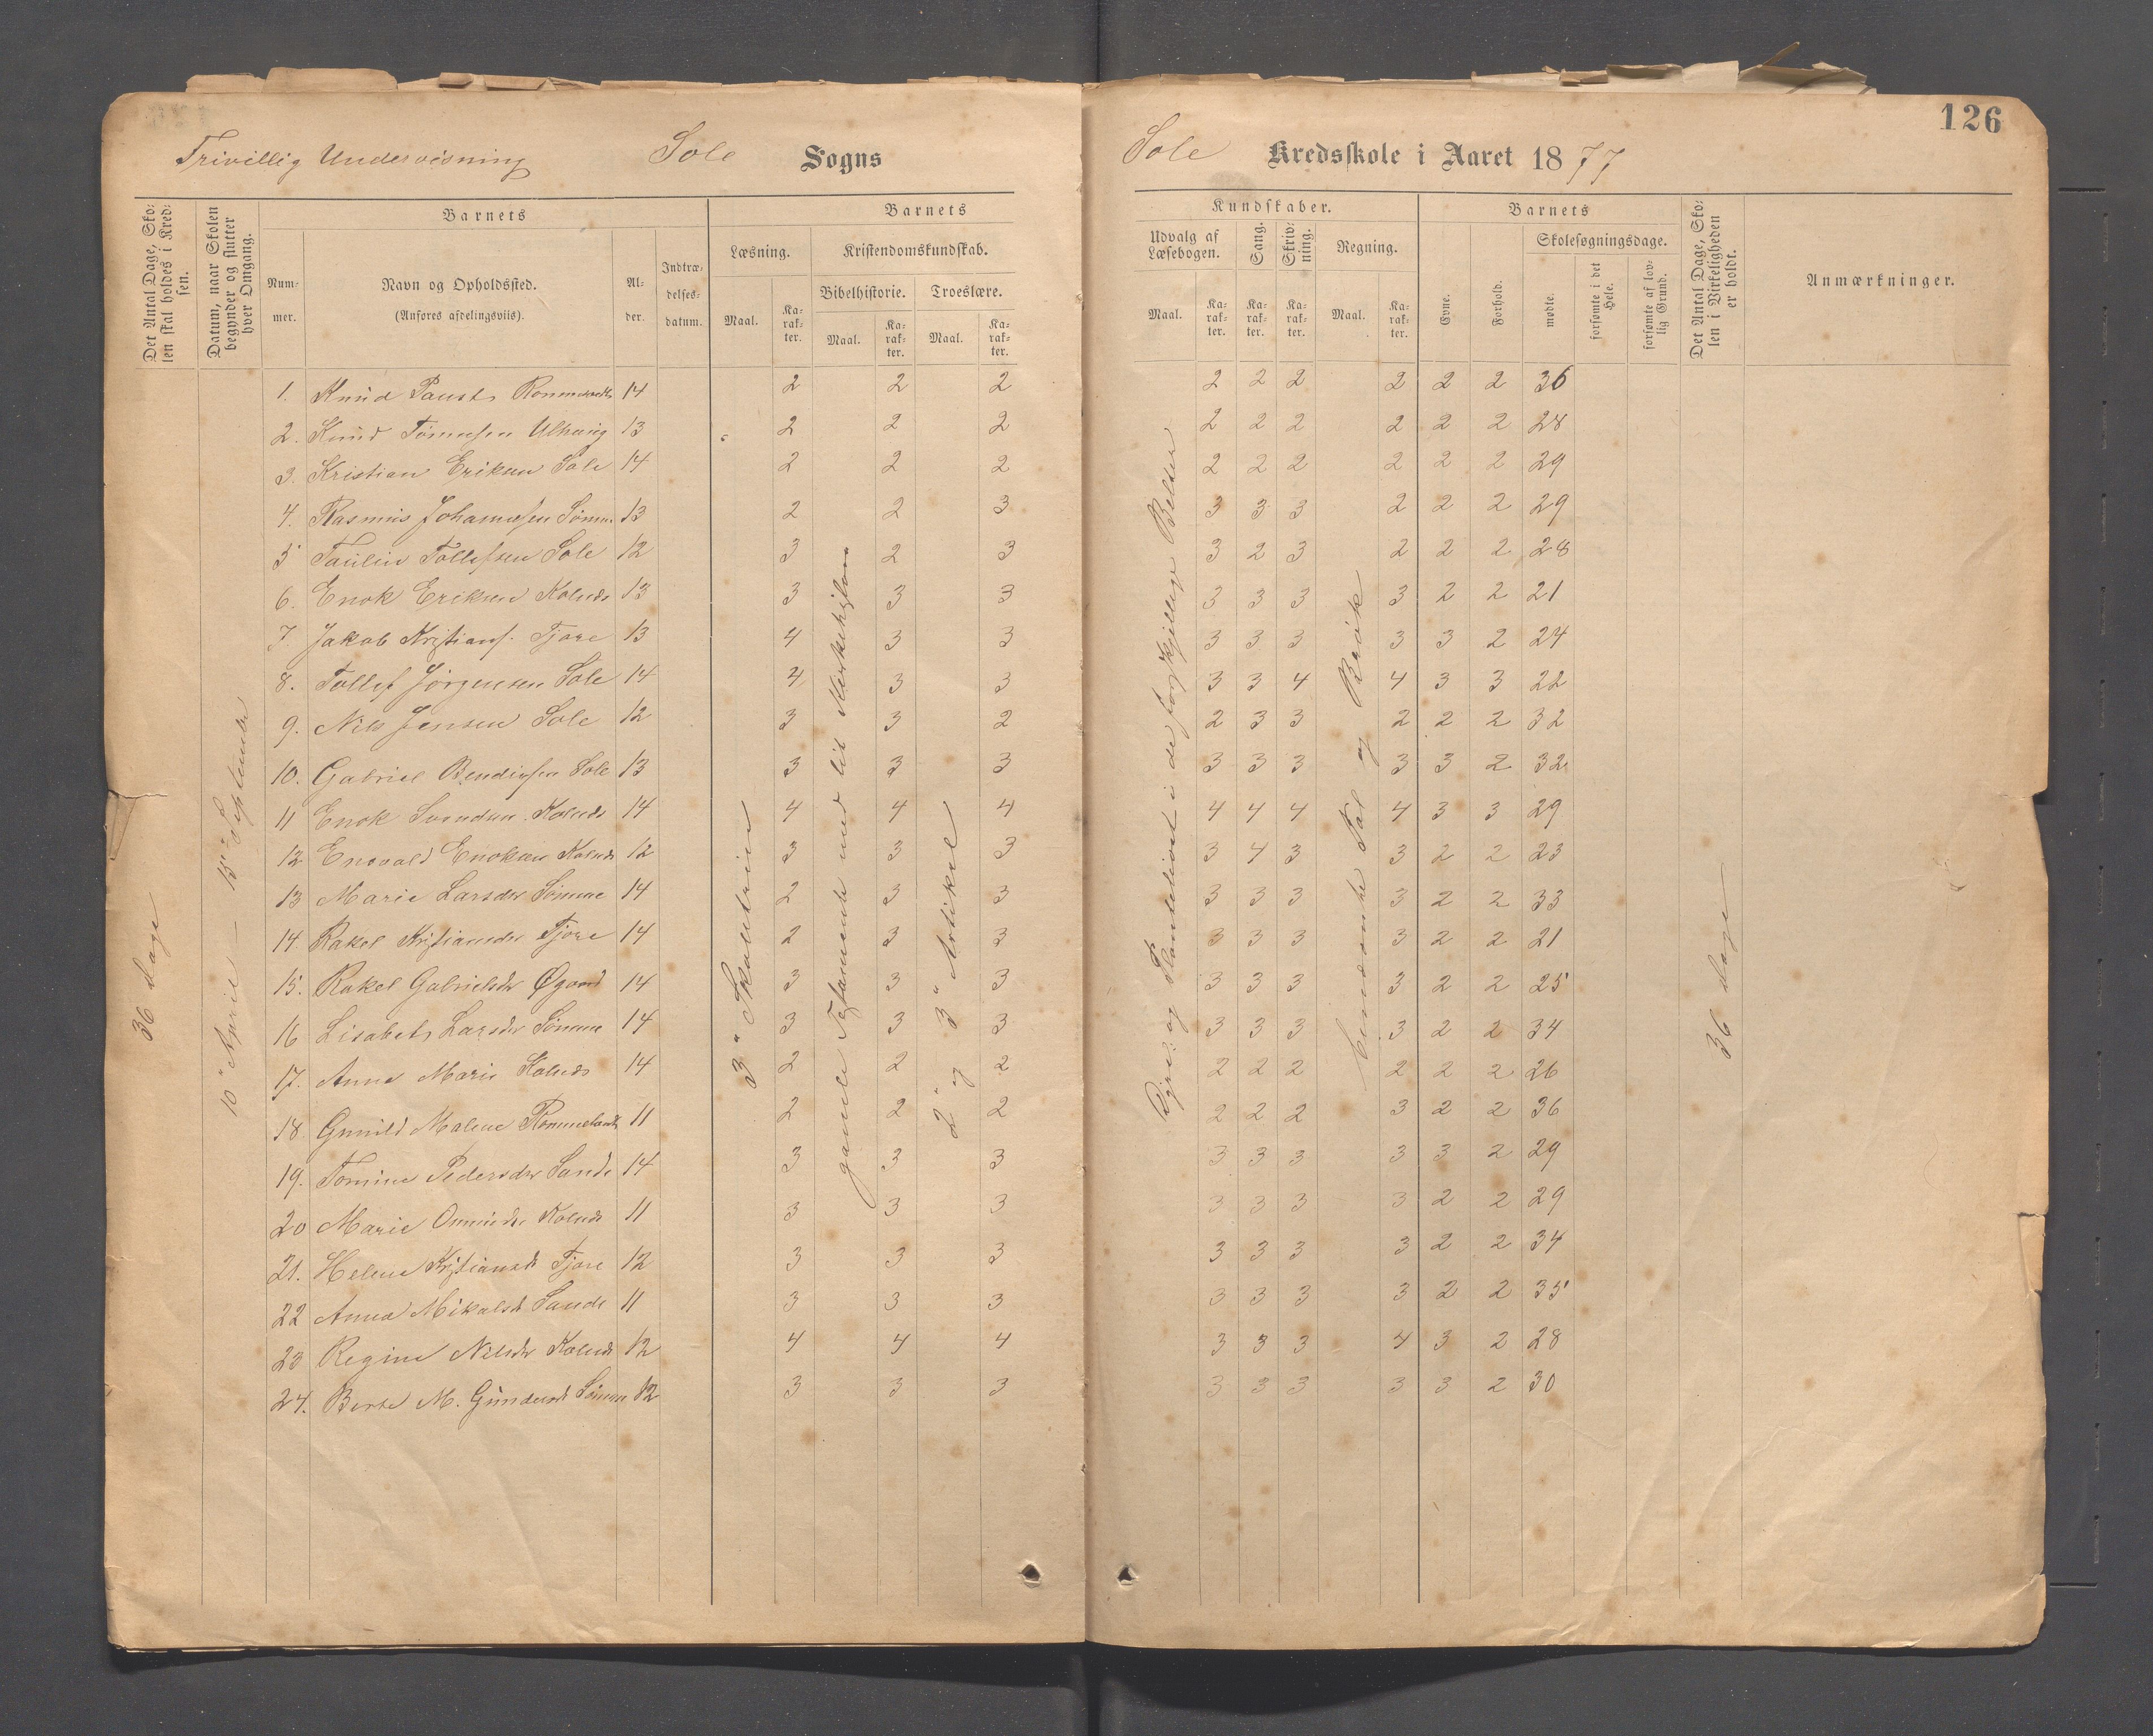 126
Frivillig Undervisning Sole Sogns
Sole Kredsskole i Aaret 1877
Det Antal Dage, Sko-
len skal holdes i Kred-
sen.
Datum, naar Skolen
begynder og slutter
hver Omgang.
Barnets
Num-
mer.
Navn og Opholdssted.
(Anføres afdelingsviis).
Al-
der.
Indtræ-
delses-
datum.
Barnets
Læsning.
Maal.
Ka-
rak-
ter.
Kristendomskundskab.
Bibelhistorie.
Maal.
Ka-
rak-
ter.
Troeslære.
Maal.
Ka-
rak-
ter.
Kundskaber.
Udvalg af
Læsebogen.
Maal.
Ka-
rak-
ter.
Sang.
Ka-
rak-
ter.
Skriv-
ning.
Ka-
rak-
ter.
Regning.
Maal.
Ka-
rak-
ter.
Barnets
Evne.
Forhold.
Skolesøgningsdage.
mødte.
forsømte i det
Hele.
forsømte af lov-
lig Grund.
Det Antal Dage, Sko-
len i Virkeligheden
er holdt.
Anmærkninger.
36 Dage
10" April – 15" September
3" Skoletrin
gamle Testamente med lit Kirkehistorie
2" og 3" Artikel
Dyre- og Plantelivet i de forskjellige Belter
benævnte Tal og Brøk
36 Dage
1. Knud Pausts 14 2 2 2 2 2 2 2 2 2 36
2. Knud Tønnesen 13 2 2 2 2 2 2 2 2 2 28
3. Kristian Eriksen Sole 14 2 2 2 2 2 2 2 2 2 29
4. Rasmus Johannesen Sømme 13 2 2 3 3 3 3 2 2 2 29
5 Paulin Tollefsen Sole 12 3 2 3 3 2 3 2 2 2 28
6. Enok Eriksen Kolneds 13 3 3 3 3 3 3 3 2 2 21
7 Jakob Kristians. Tjore 13 4 3 3 3 3 3 3 3 2 24
8. Tollef Jørgensen Sole 14 4 3 3 3 3 4 4 3 3 22
9. Nils Jensen Sole 12 3 3 2 2 3 3 2 2 2 32
10. Gabriel Bendiksen Sole 13 3 3 3 3 3 3 3 3 2 32
11 Enok Svendsen Kolneds 14 4 4 4 4 4 4 4 3 3 29
12 Enevald Enoksen Kolneds 12 3 3 3 3 4 3 3 2 2 23
13 Marie Larsdtr Sømme 14 2 3 3 3 3 3 3 2 2 33
14. Rakel Kristiansdtr Tjore 14 2 3 3 3 3 3 3 2 2 21
15. Rakel Gabrielsdtr Øgaard 14 3 3 3 3 3 3 3 2 2 25
16 Lisabets Larsdtr Sømme 14 3 3 3 3 3 3 3 2 2 34
17. Anna Marie Kolneds 14 2 2 2 2 2 2 2 2 2 26
18. Gunild Malene 11 2 2 2 2 2 2 3 2 2 36
19. Tomine Pedersdtr Sande 14 3 3 3 3 3 3 3 3 2 29
20 Marie Kolneds 11 3 3 3 3 3 3 3 2 2 29
21. Helene Kristiansdtr Tjore 12 3 3 3 3 3 3 3 2 2 34
22 Anna Mikalsdtr Sande 11 3 3 3 3 3 3 3 2 2 35
23 Regine Nilsdtr Kolneds 12 4 4 4 3 3 3 4 3 2 28
24. Berte M. Gundersdtr Sømme 12 3 3 3 3 3 3 3 3 2 30